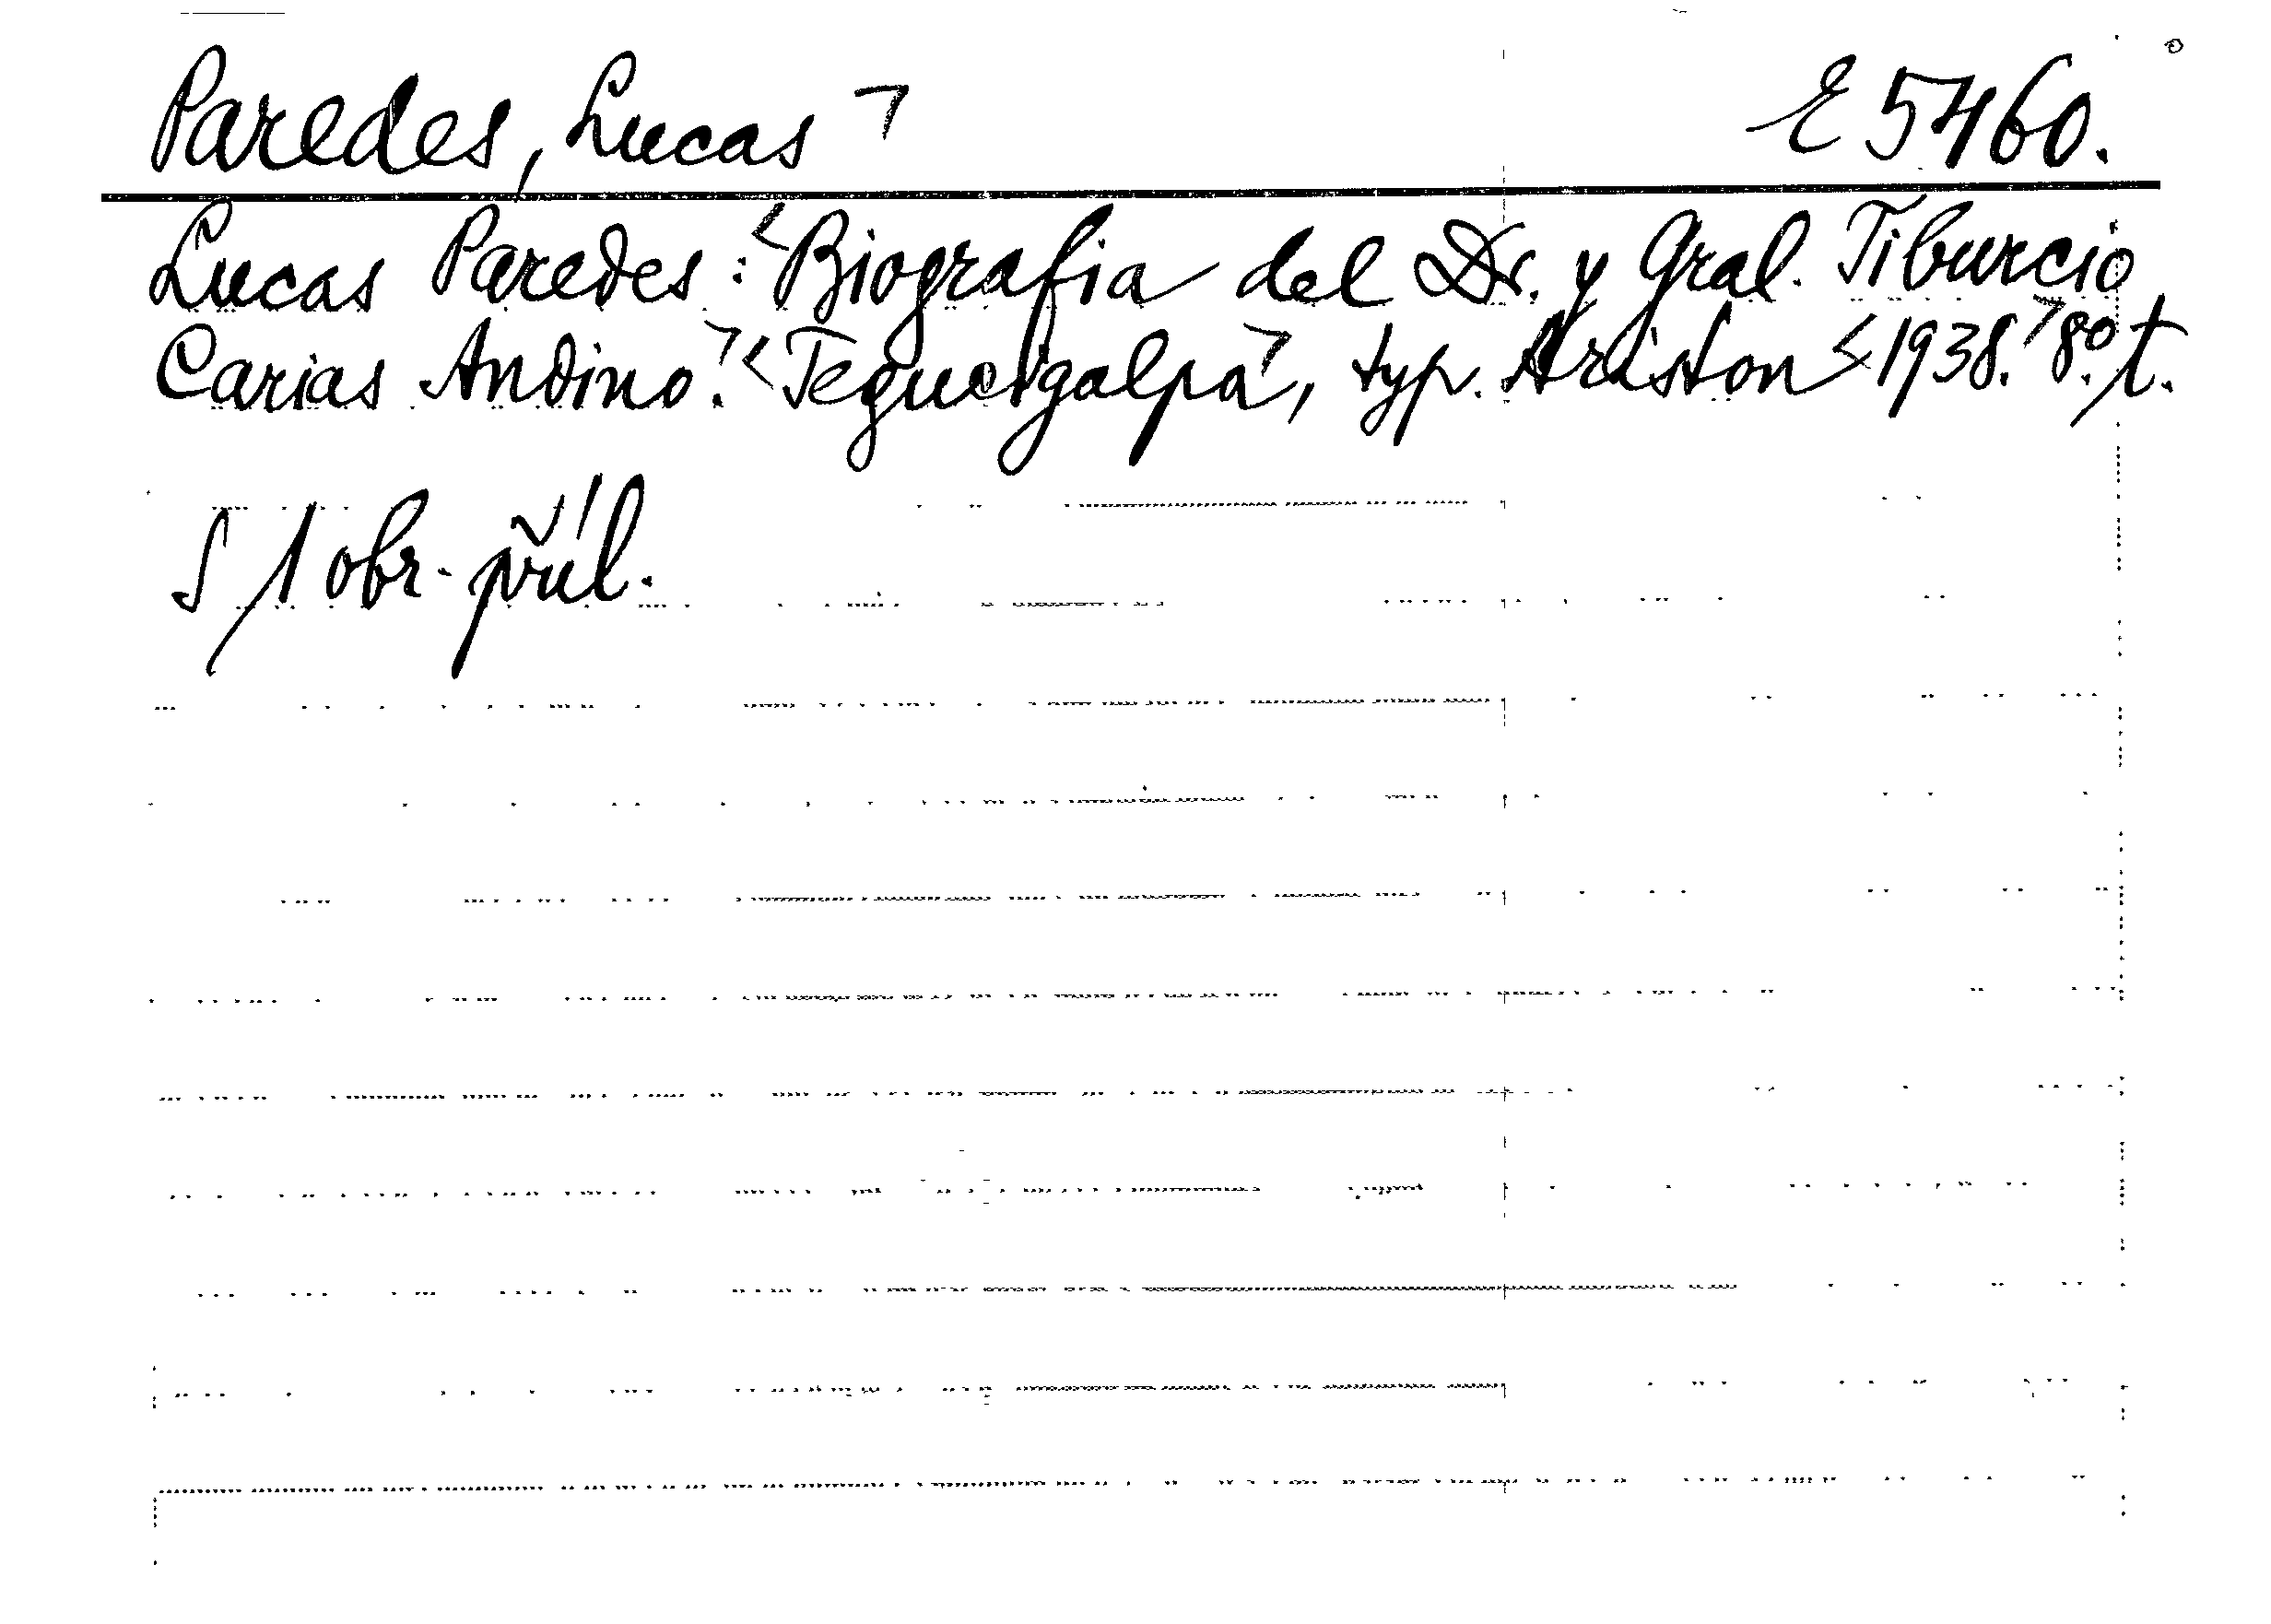 Paredes, Lucas ¬ E 5460.
Lucas Paredes: <Biografia del Dr. y Gral. Tiburcio
Carias Andino.¬ <Tegucigalpa¬, typ. Ariston <1938.¬ 8º. t.
S 1 obr. příl.